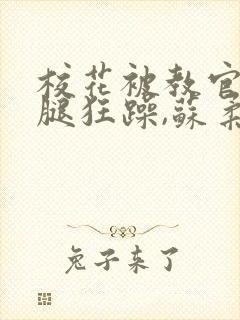 校花被教官
腿狂躁,蘇柔
兔子来了